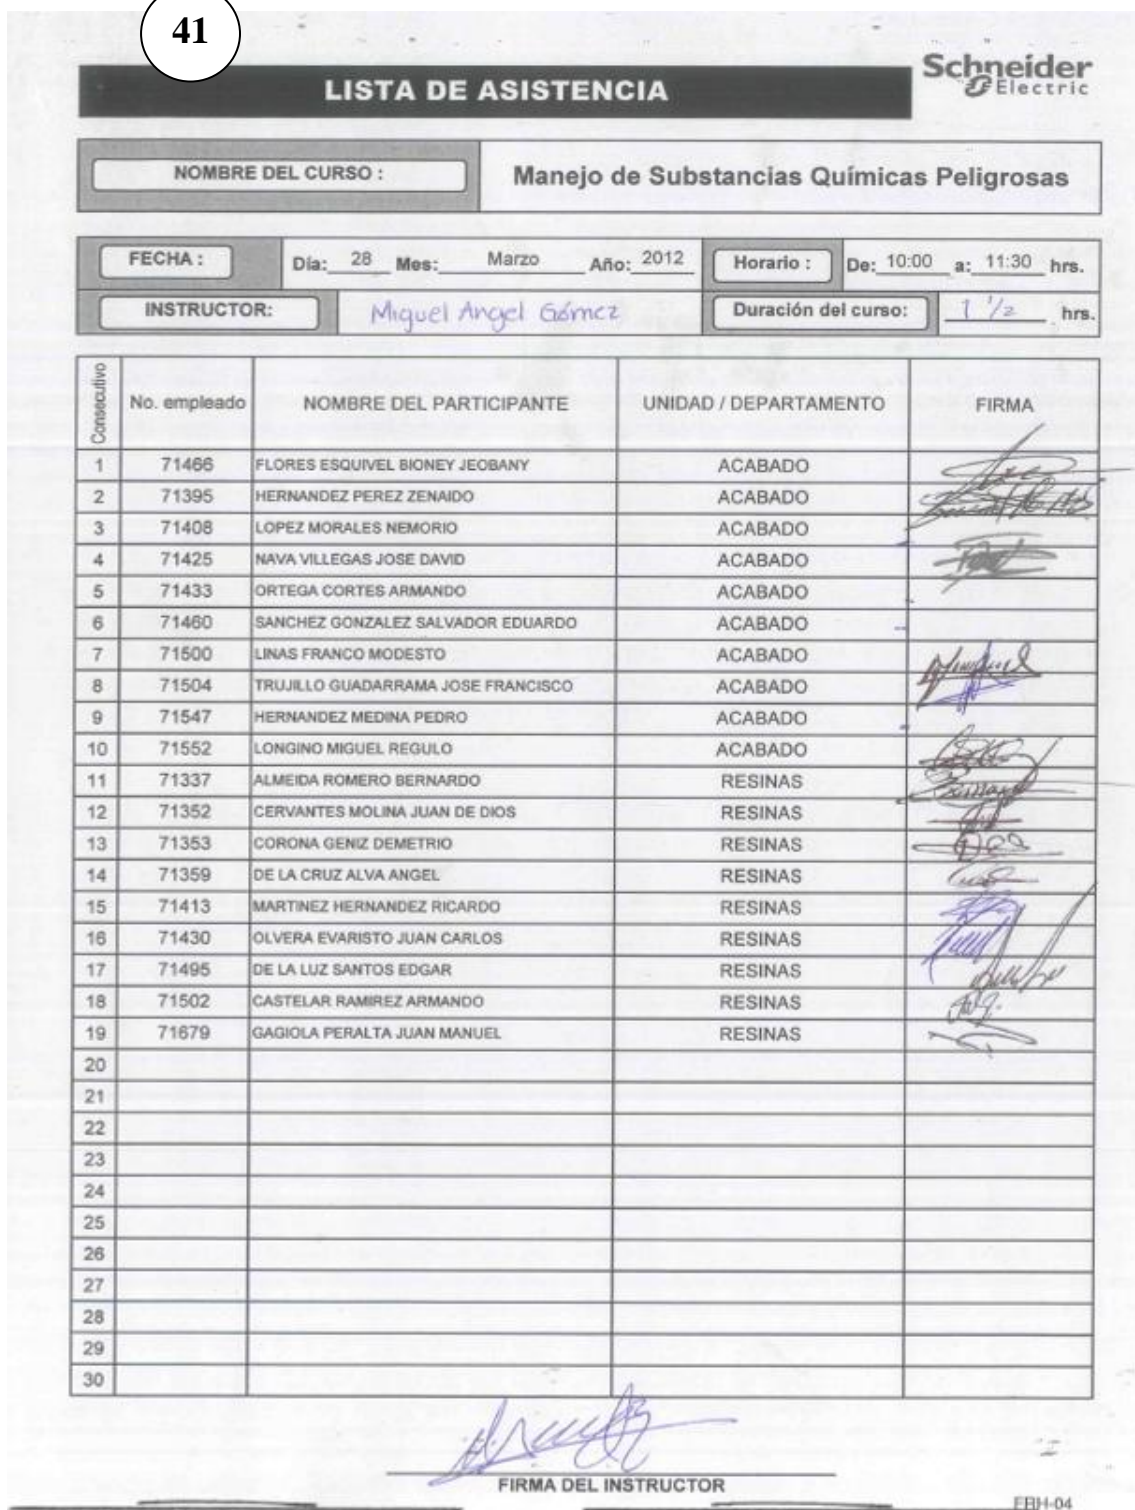 41
Schneider
Electric
LISTA DE ASISTENCIA
NOMBRE DEL CURSO : Manejo de Substancias Químicas Peligrosas
FECHA : Día: 28 Mes: Marzo Año: 2012 Horario : De: 10:00 a: 11:30 hrs.
INSTRUCTOR: Miguel Angel Gómez Duración del curso: 1 1/2 hrs.
Consecutivo No. empleado NOMBRE DEL PARTICIPANTE UNIDAD / DEPARTAMENTO FIRMA
1 71466 FLORES ESQUIVEL BIONEY JEOBANY ACABADO
2 71395 HERNANDEZ PEREZ ZENAIDO ACABADO
3 71408 LOPEZ MORALES NEMORIO ACABADO
4 71425 NAVA VILLEGAS JOSE DAVID ACABADO
5 71433 ORTEGA CORTES ARMANDO ACABADO
6 71460 SANCHEZ GONZALEZ SALVADOR EDUARDO ACABADO
7 71500 LINAS FRANCO MODESTO ACABADO
8 71504 TRUJILLO GUADARRAMA JOSE FRANCISCO ACABADO
9 71547 HERNANDEZ MEDINA PEDRO ACABADO
10 71552 LONGINO MIGUEL REGULO ACABADO
11 71337 ALMEIDA ROMERO BERNARDO RESINAS
12 71352 CERVANTES MOLINA JUAN DE DIOS RESINAS
13 71353 CORONA GENIZ DEMETRIO RESINAS
14 71359 DE LA CRUZ ALVA ANGEL RESINAS
15 71413 MARTINEZ HERNANDEZ RICARDO RESINAS
16 71430 OLVERA EVARISTO JUAN CARLOS RESINAS
17 71495 DE LA LUZ SANTOS EDGAR RESINAS
18 71502 CASTELAR RAMIREZ ARMANDO RESINAS
19 71679 GAGIOLA PERALTA JUAN MANUEL RESINAS
20
21
22
23
24
25
26
27
28
29
30
FIRMA DEL INSTRUCTOR
FRH-04